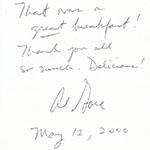 That was a
great breakfast!
Thank you all
so much. Delicious!
Al Gore
May 12, 2000